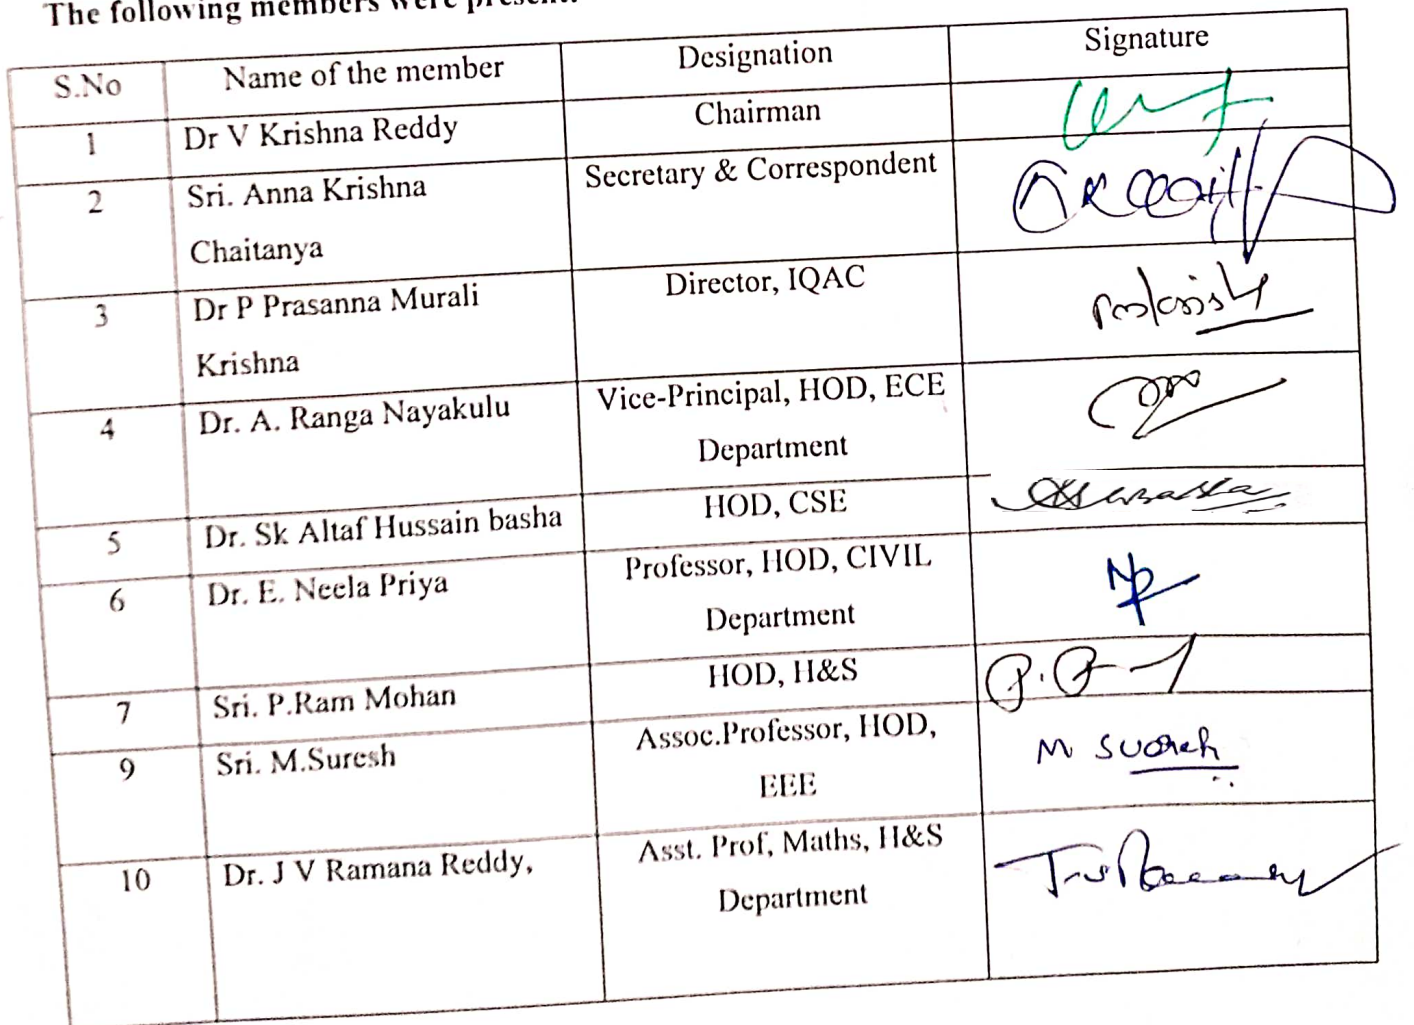 The following members were present:
S.No Name of the member Designation Signature
1 Dr V Krishna Reddy Chairman
2 Sri. Anna Krishna Secretary & Correspondent
Chaitanya
3 Dr P Prasanna Murali Director, IQAC
Krishna
4 Dr. A. Ranga Nayakulu Vice-Principal, HOD, ECE
Department
5 Dr. Sk Altaf Hussain basha HOD, CSE
6 Dr. E. Neela Priya Professor, HOD, CIVIL
Department
7 Sri. P.Ram Mohan HOD, H&S
9 Sri. M.Suresh Assoc.Professor, HOD, M Suresh
EEE
10 Dr. J V Ramana Reddy, Asst. Prof, Maths, H&S
Department